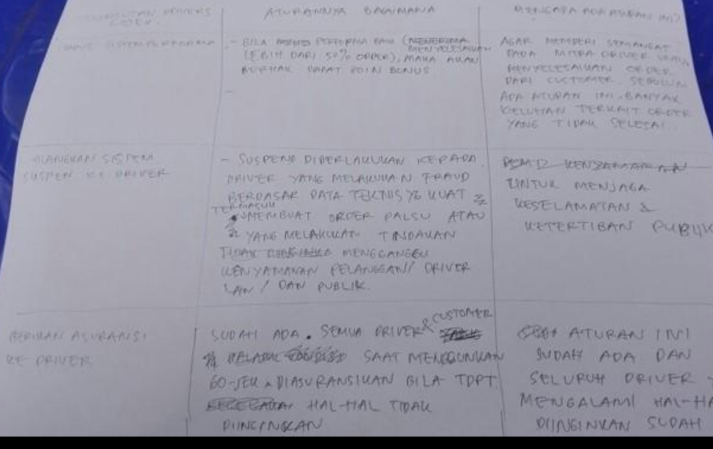 TUNTUTAN DRIVERS
GOJEK
ATURANNYA BAGAIMANA
MENGAPA ADA ATURAN INI?
- BILA PERFORMA BAIK (MENYELESAIKAN
LEBIH DARI 50% ORDER), MAKA AKAN
BERHAK DAPAT POIN BONUS
-
AGAR MEMBERI SEMANGAT
PADA MITRA DRIVER UNTUK
MENYELESAIKAN ORDER
DARI CUSTOMER. SEBELUM
ADA ATURAN INI, BANYAK
KELUHAN TERKAIT ORDER
YANG TIDAK SELESAI.
HILANGKAN SISTEM
SUSPEN KE DRIVER
- SUSPEND DIBERLAKUKAN KEPADA
DRIVER YANG MELAKUKAN FRAUD
BERDASAR DATA TEKNIS YG KUAT
TERMASUK
MEMBUAT ORDER PALSU ATAU
YANG MELAKUKAN TINDAKAN
TIDAK MENGGANGGU
KENYAMANAN PELANGGAN/ DRIVER
LAIN / DAN PUBLIK.
UNTUK MENJAGA
KESELAMATAN &
KETERTIBAN PUBLIK
BERIKAN ASURANSI
KE DRIVER
SUDAH ADA. SEMUA DRIVER & CUSTOMER
SAAT MENGGUNKAN
GO-JEK DIASURANSIKAN BILA TDPT
HAL-HAL TIDAK
DIINGINKAN
ATURAN INI
SUDAH ADA DAN
SELURUH DRIVER
MENGALAMI HAL-HA
DIINGINKAN SUDAH